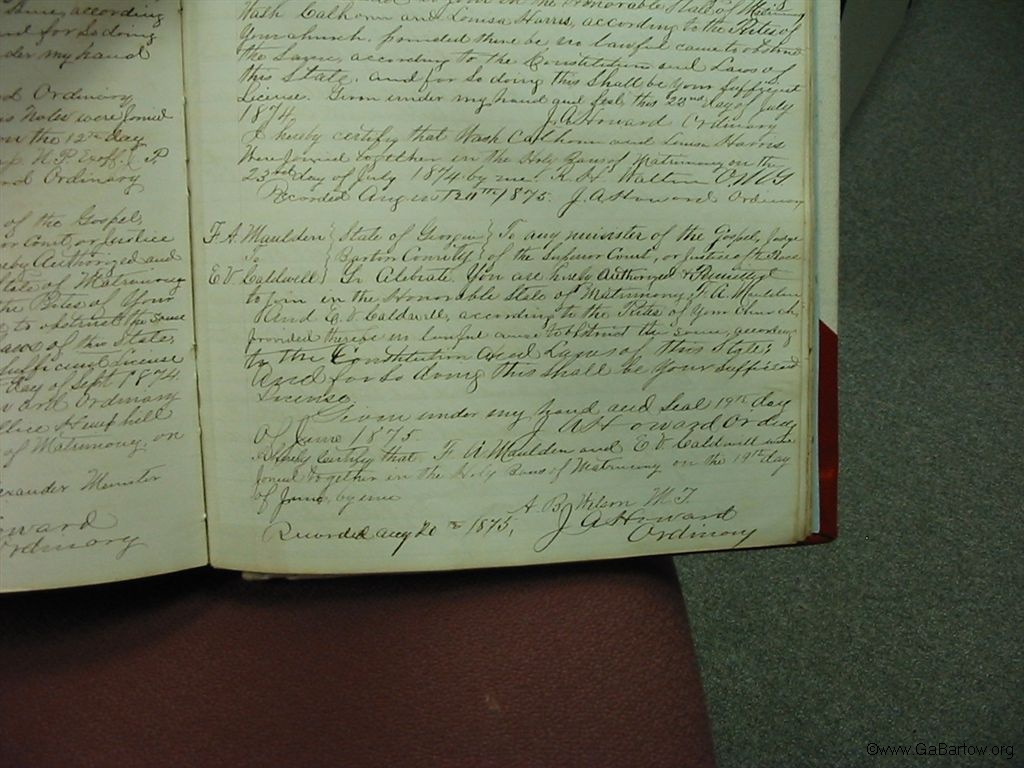 Same, according
and for so doing
under my hand
and Ordinary
were joined
on the 12th day
N P Exoff. J P
and Ordinary
of the Gospel,
or Court, or Justice
hereby Authorized and
State of Matrimony
the Rites of Your
to obstruct the same
Laws of this State,
sufficient License
day of Sept 1874.
Howard Ordinary
Alice Hemphill
of Matrimony, on
Alexander Minister
Howard
Ordinary
join in the Honorable State of Matrimony
Wash Calhoun and Louisa Harris, according to the Rites of
Your church. provided there be no lawful cause to obstruct
the Same, according to the Constitution and Laws of
this State, and for so doing this Shall be Your Sufficient
License. Given under my hand and Seal this 22nd day of July
1874. J. A. Howard Ordinary
I hereby certify that Wash Calhoun and Louisa Harris
Were Joined together in the Holy Bans of Matrimony on the
23rd day of July 1874 by me R. H. Walton
Recorded August 20th 1875. J. A Howard Ordinary
F. A. Maulden } State of Georgia } To any minister of the Gospel, Judge
To } Bartow County } of the Superior Court, or Justice of the Peace
E V. Caldwell } To Celebrate. You are hereby Authorized &
to join in the Honorable State of Matrimony F. A. Maulden
And E. V. Caldwell, according to the Rites of Your Church,
provided there be no lawful cause to obstruct the same, according
to the Constitution and Laws of this State;
And for So doing this shall be your Sufficient
License.
Given under my hand and Seal 19th day
of June 1875. J A Howard Ordiny
I Hereby Certify that F A Maulden and E V Caldwell were
Joined together in the Holy Bans of Matrimony on the 19th day
of June, by me
A. B. Wilson M. G.
Recorded Aug 20th 1875, J A Howard
Ordinary
©www.GaBartow.org